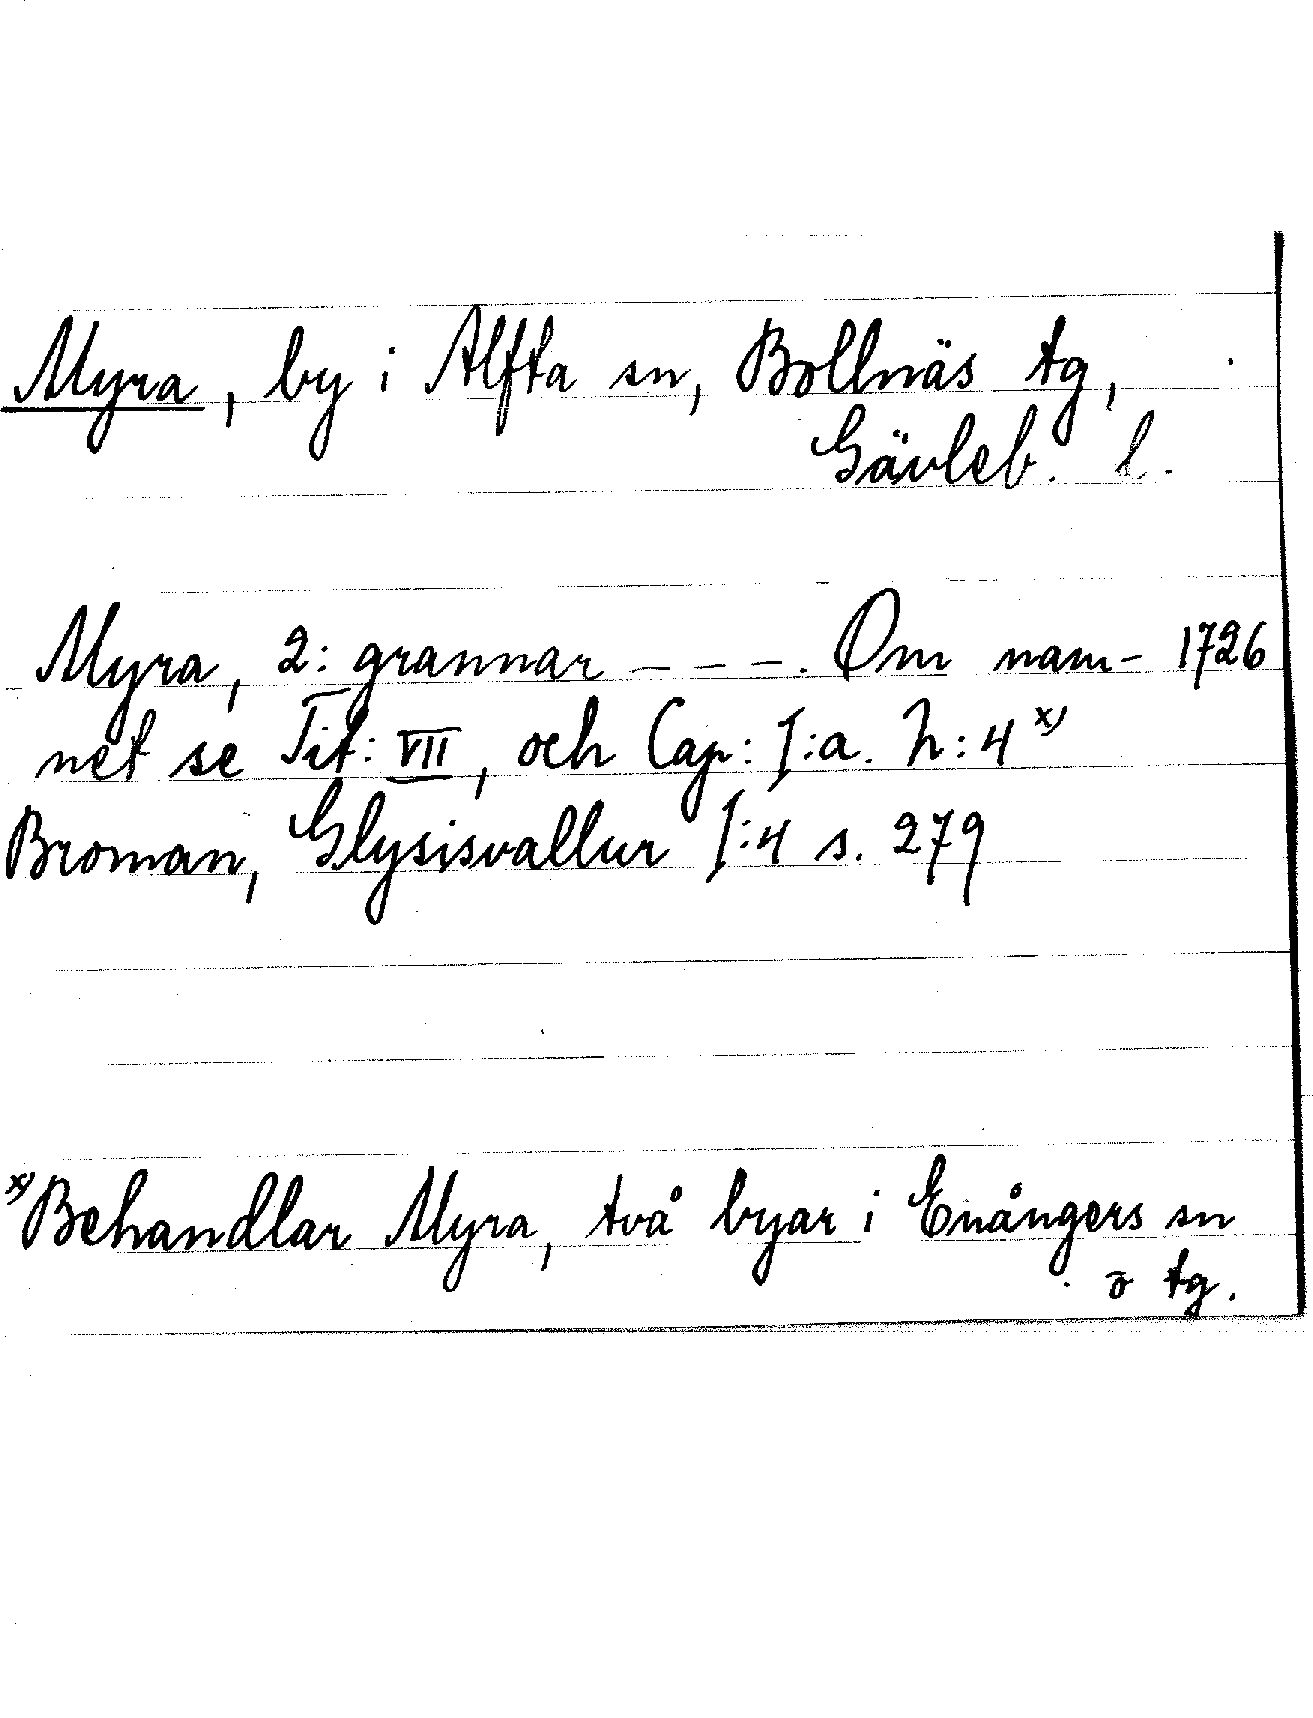 Myra, by i Alfta sn, Bollnäs tg,
Gävleb. l.
Myra, 2: grannar – – –. Om nam- 1726
net se Tit: VII, och Cap: I:a. N:4 x)
Broman, Glysisvallur I:4 s. 279
x) Behandlar Myra, två byar i Enångers sn
o tg.